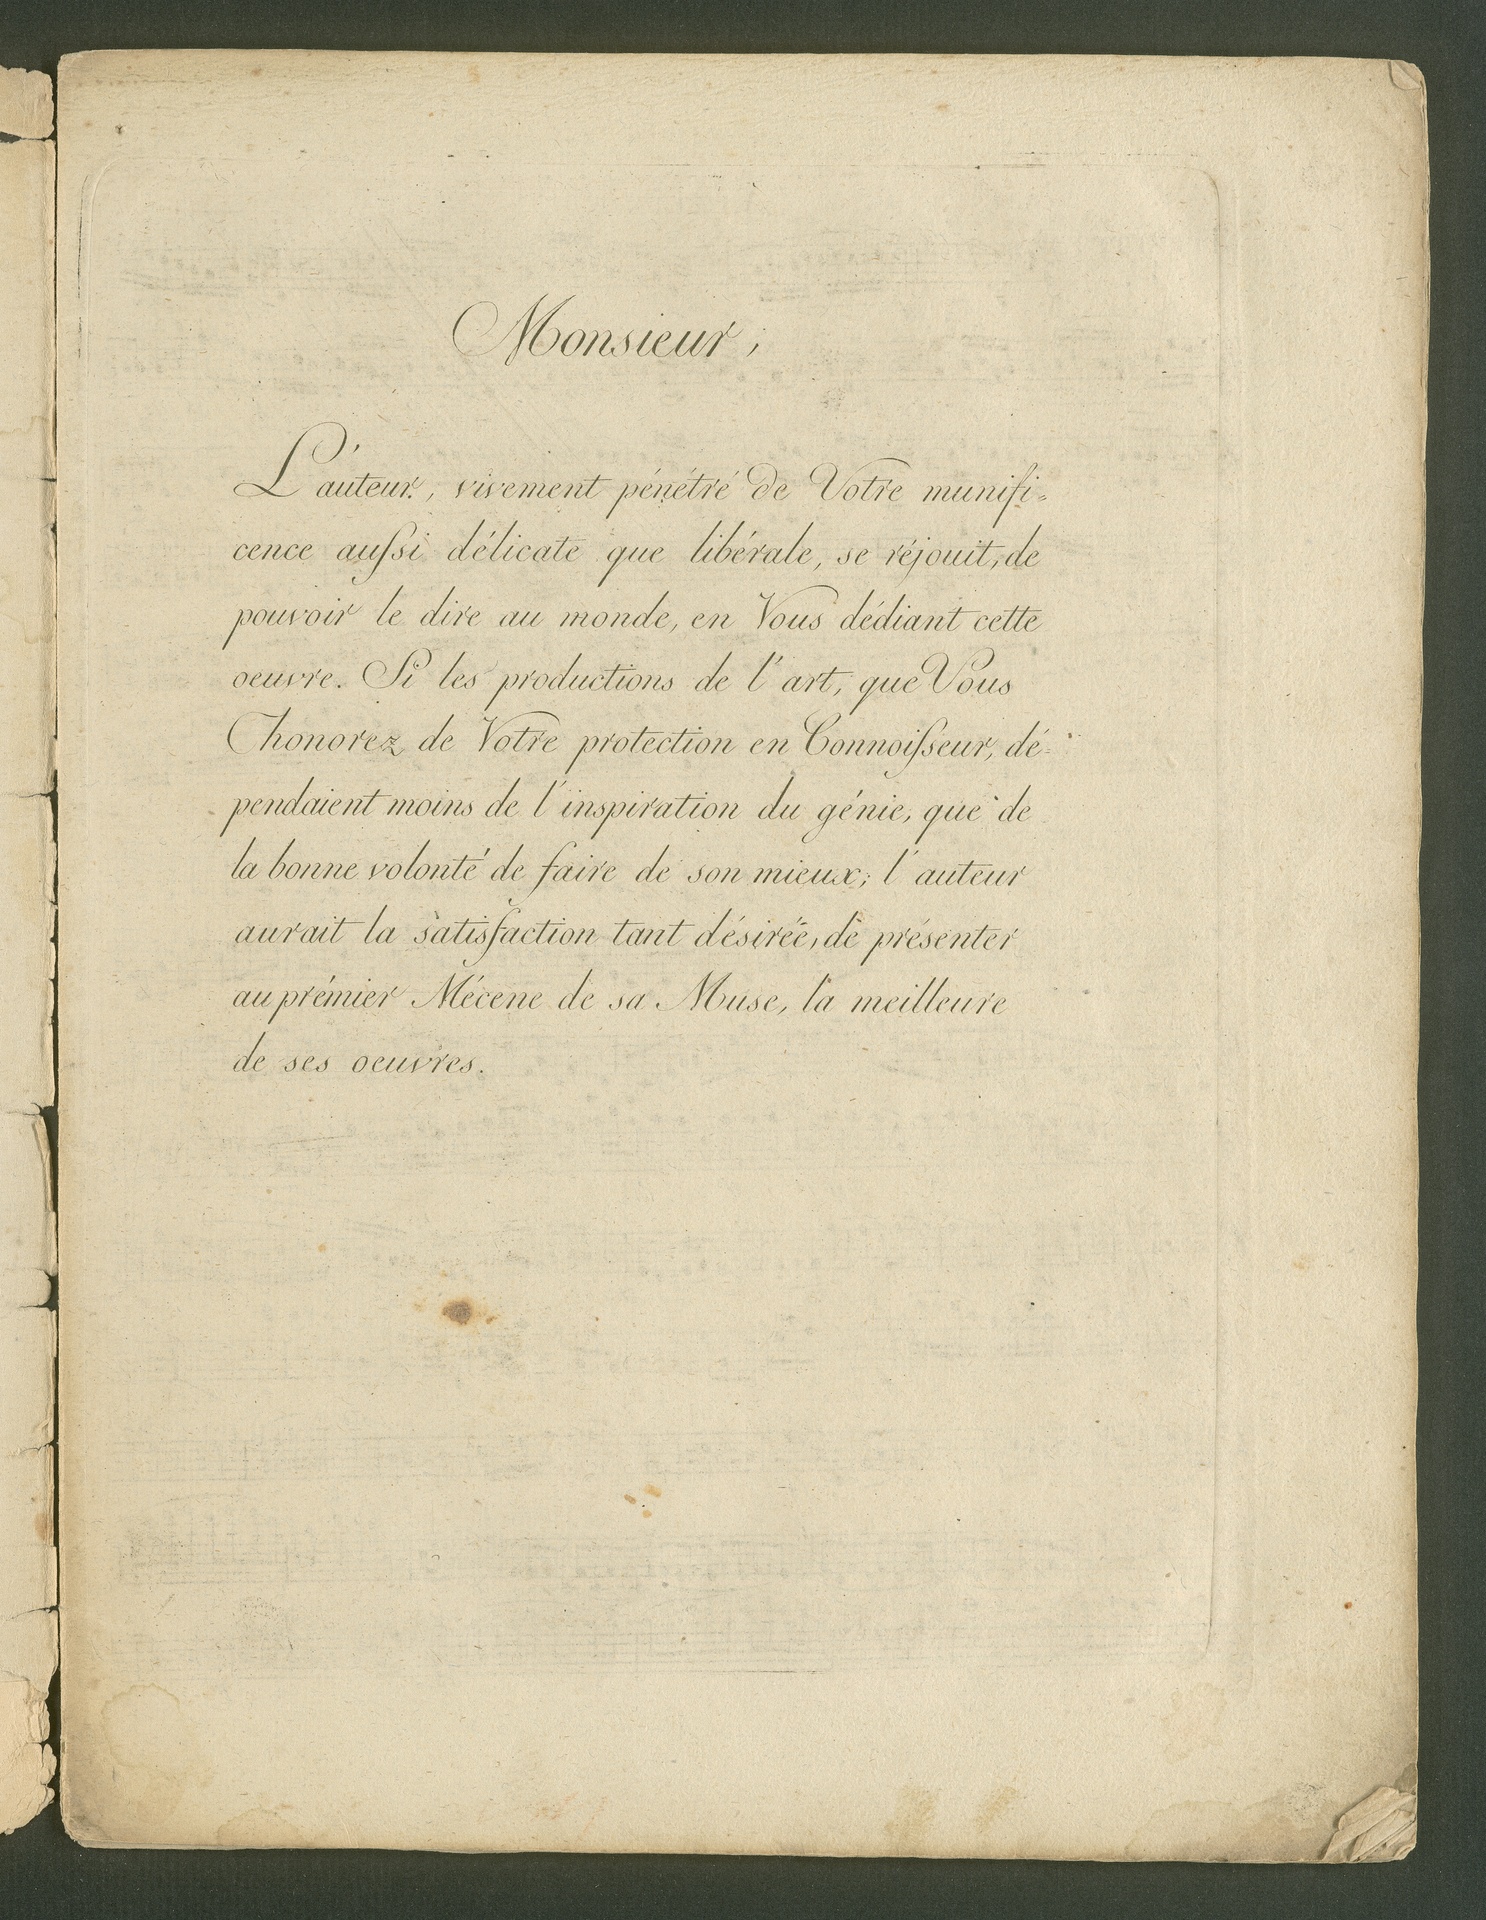 Monsieur,
L'áuteur, vivement pénétré de Votre munifi-
cence aussi délicate que libérale, se réjouit, de
pouvoir le dire au monde, en Vous dédiant cette
oeuvre. Si les productions de l'art, que Vous
honorez de Votre protection en Connoisseur, dé-
pendaient moins de l'inspiration du génie, que de
la bonne volonté de faire de son mieux; l'auteur
aurait la satisfaction tant désirée, de présenter
au prémier Mécene de sa Muse, la meilleure
de ses oeuvres.